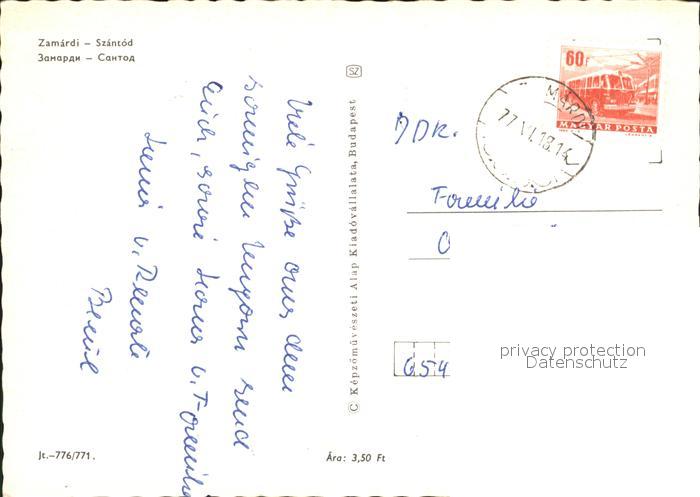 Zamárdi – Szántód
Замарди – Сантод
Viele Grüße aus dem
sonnigen Ungarn sendet
Euch, sowie Hans u. Familie
u. Renate
© Képzőművészeti Alap Kiadóvállalata, Budapest
SZ
60f
MAGYAR POSTA
77 VI. 18. 14
DDR.
Familie
654
privacy protection
Datenschutz
Jt.–776/771.
Ára: 3,50 Ft